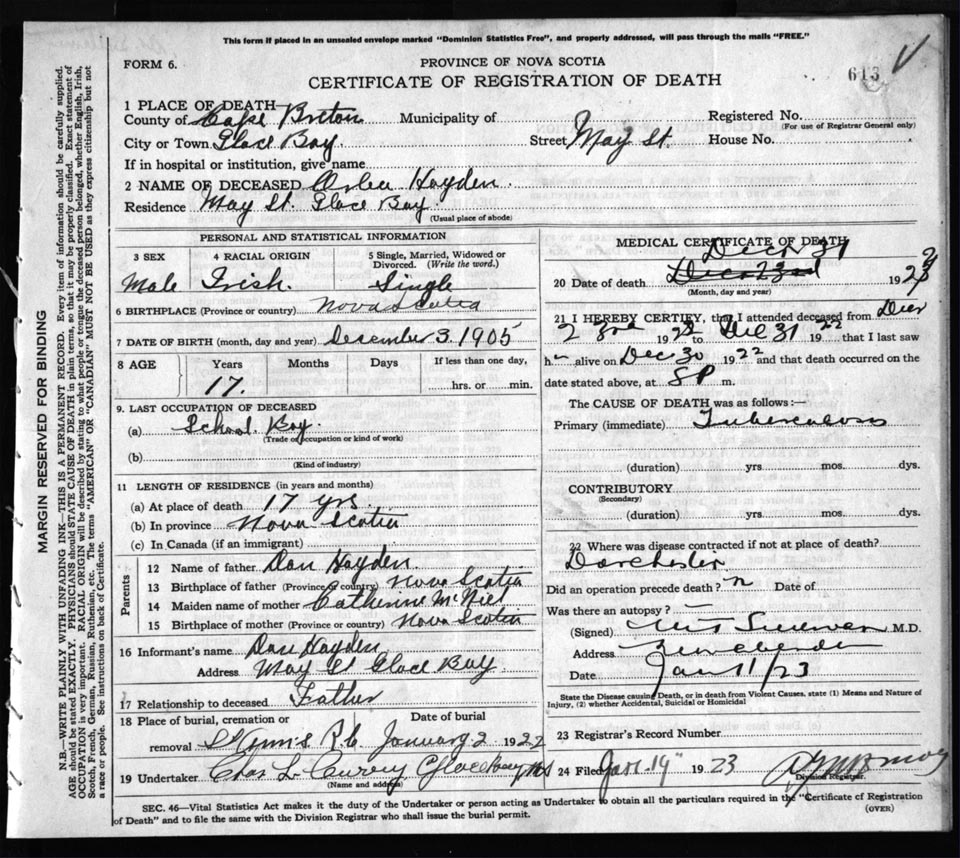 This form if placed in an unsealed envelope marked "Dominion Statistics Free", and properly addressed, will pass through the mails "FREE."
FORM 6.
PROVINCE OF NOVA SCOTIA
CERTIFICATE OF REGISTRATION OF DEATH
613
1 PLACE OF DEATH—
County of Cape Breton Municipality of Registered No.
(For use of Registrar General only)
City or Town Glace Bay Street May St. House No.
If in hospital or institution, give name
2 NAME OF DECEASED Hayden
Residence May St. Glace Bay
(Usual place of abode)
PERSONAL AND STATISTICAL INFORMATION
3 SEX 4 RACIAL ORIGIN 5 Single, Married, Widowed or Divorced. (Write the word.)
Male Irish. Single
6 BIRTHPLACE (Province or country) Nova Scotia
7 DATE OF BIRTH (month, day and year) December 3. 1905
8 AGE Years Months Days If less than one day,
17. hrs. or min.
9. LAST OCCUPATION OF DECEASED
(a) School Boy.
(Trade or occupation or kind of work)
(b)
(Kind of industry)
11 LENGTH OF RESIDENCE (in years and months)
(a) At place of death 17 yrs
(b) In province Nova Scotia
(c) In Canada (if an immigrant)
Parents
12 Name of father Dan Hayden
13 Birthplace of father (Province or country) Nova Scotia
14 Maiden name of mother Catherine McNeil
15 Birthplace of mother (Province or country) Nova Scotia
16 Informant's name Dan Hayden
Address May St Glace Bay
17 Relationship to deceased Father
18 Place of burial, cremation or Date of burial
removal St Ann's R.C. January 2 1922
19 Undertaker Chas L Curry Glace Bay NS
(Name and address)
MEDICAL CERTIFICATE OF DEATH
Dec 31
20 Date of death Dec 23rd 192
(Month, day and year)
21 I HEREBY CERTIFY, that I attended deceased from Decr
23rd 1922 to Dec 31 1922 that I last saw
h alive on Dec 30 1922 and that death occurred on
date stated above, at 8 P m.
The CAUSE OF DEATH was as follows:—
Primary (immediate) Tuberculosis
(duration) yrs. mos. dys.
CONTRIBUTORY
(Secondary)
(duration) yrs. mos. dys.
22 Where was disease contracted if not at place of death?
Dorchester
Did an operation precede death? n Date of
Was there an autopsy?
(Signed) M.D.
Address
Date Jan 11/23
State the Disease causing Death, or in death from Violent Causes, state (1) Means and Nature of Injury, (2) whether Accidental, Suicidal or Homicidal
23 Registrar's Record Number
24 Filed Jan 19" 1923
Division Registrar.
SEC. 46—Vital Statistics Act makes it the duty of the Undertaker or person acting as Undertaker to obtain all the particulars required in the "Certificate of Registration
of Death" and to file the same with the Division Registrar who shall issue the burial permit.
(OVER)
MARGIN RESERVED FOR BINDING
N.B.—WRITE PLAINLY WITH UNFADING INK—THIS IS A PERMANENT RECORD. Every item of information should be carefully supplied.
AGE should be stated EXACTLY. PHYSICIANS should STATE CAUSE OF DEATH in plain terms, so that it may be properly classified. Exact statement of
OCCUPATION is very important. RACIAL ORIGIN will be described by stating to what people or tongue the deceased person belonged, whether English, Irish,
Scotch, French, German, Russian, Ruthenian, etc. The terms "AMERICAN" OR "CANADIAN" MUST NOT BE USED as they express citizenship but not
a race or people. See instructions on back of Certificate.